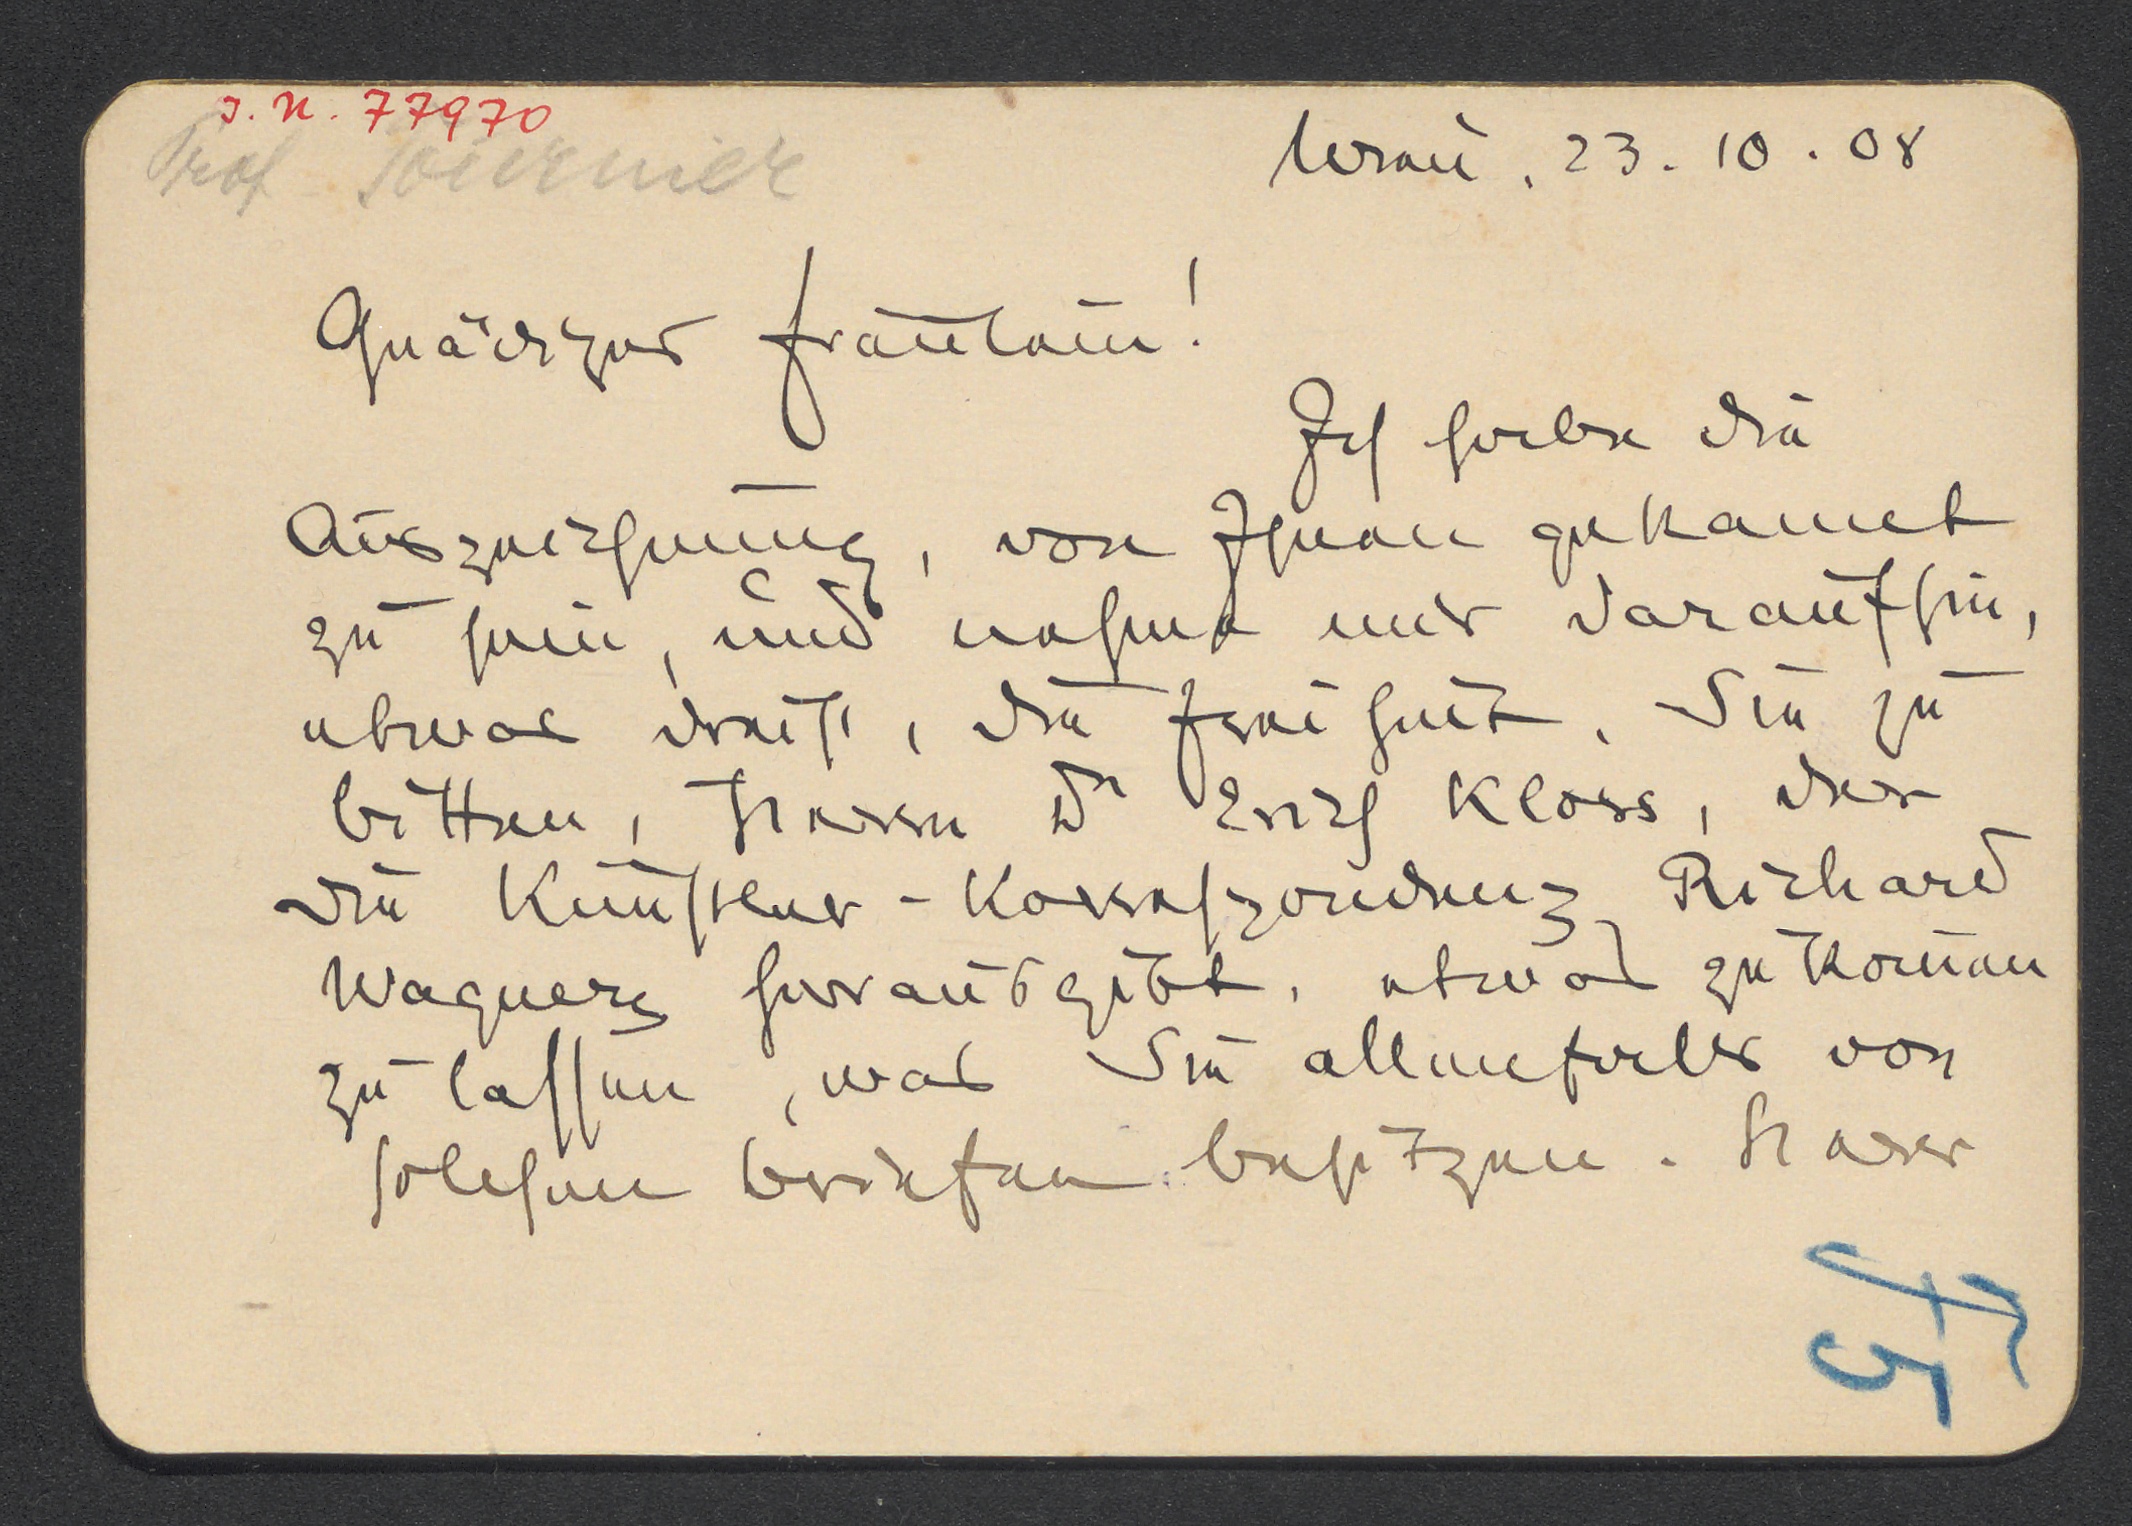 I. N. 77970
Prof Fournier
Wien, 23. 10. 08
Gnädiges Fräulein!
Ich habe die
Auszeichnung, von Ihnen gekannt
zu sein, und nehme mir daraufhin,
etwas dreist, die Freiheit, Sie zu
bitten, Herrn Dr Erich Kloss, der
die Künstler-Korrespondenz Richard
Wagners herausgibt, etwas zukommen
zu lassen, was Sie allenfalls von
solchen Briefen besitzen. Herr